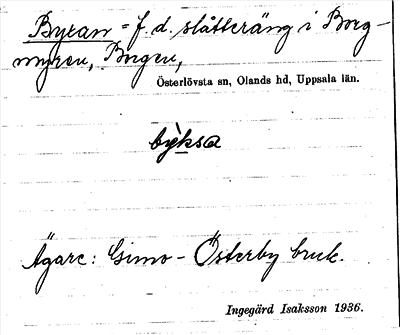 Byxan = f. d. slåtteräng i Borg-
myren, Borgen,
Österlövsta sn, Olands hd, Uppsala län.
býksa
Ägare: Gimo-Österby bruk.
Ingegärd Isaksson 1936.